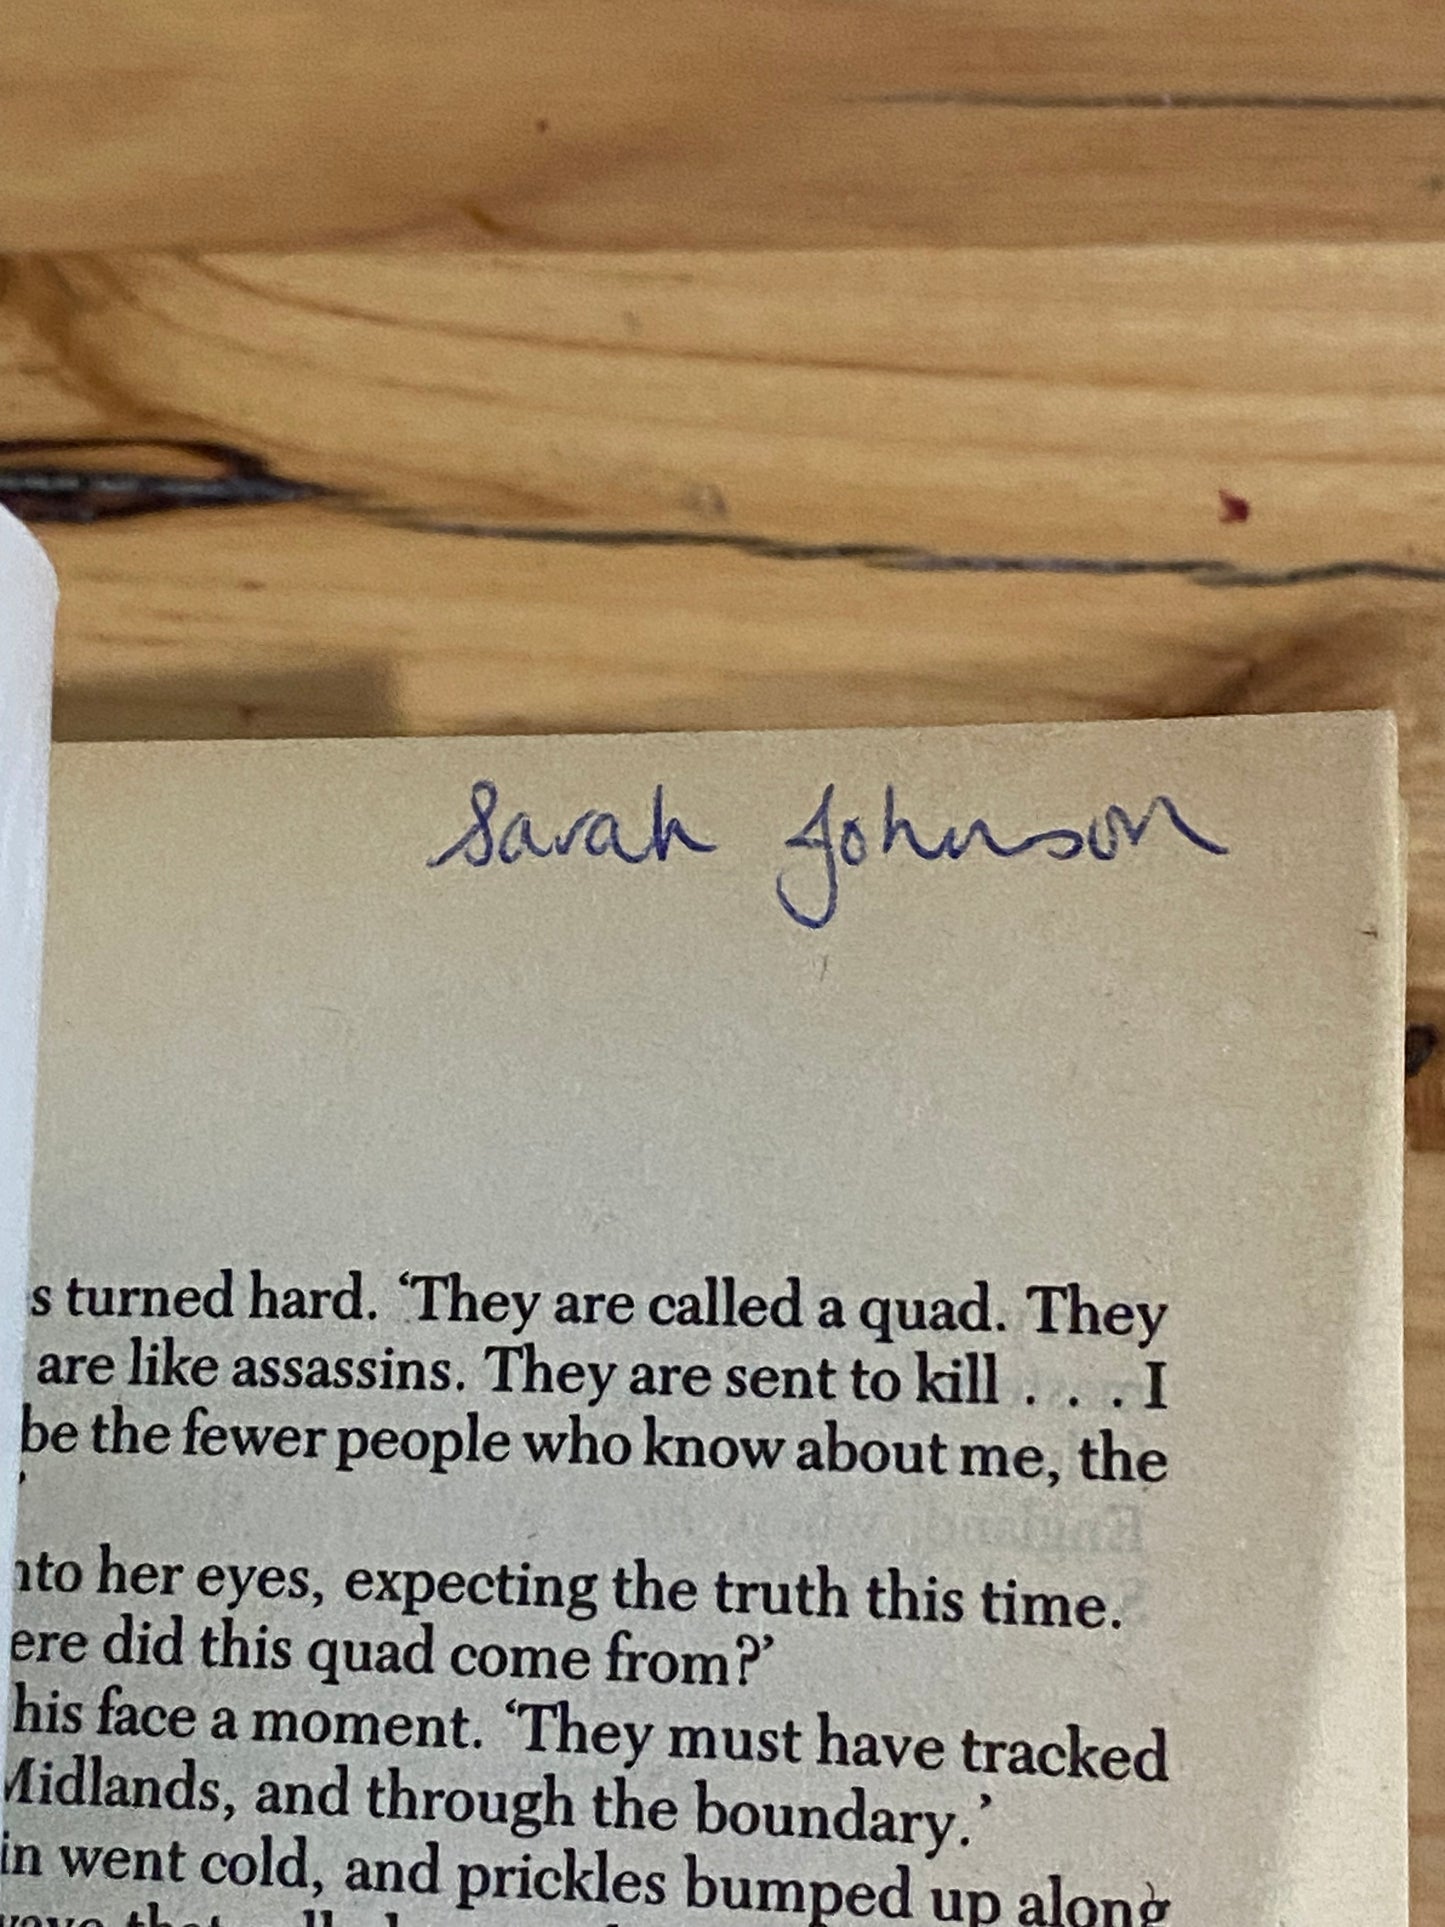 Sarah Johnson
s turned hard. ‘They are called a quad. They
are like assassins. They are sent to kill . . . I
be the fewer people who know about me, the
’
to her eyes, expecting the truth this time.
ere did this quad come from?’
his face a moment. ‘They must have tracked
Midlands, and through the boundary.’
in went cold, and prickles bumped up along